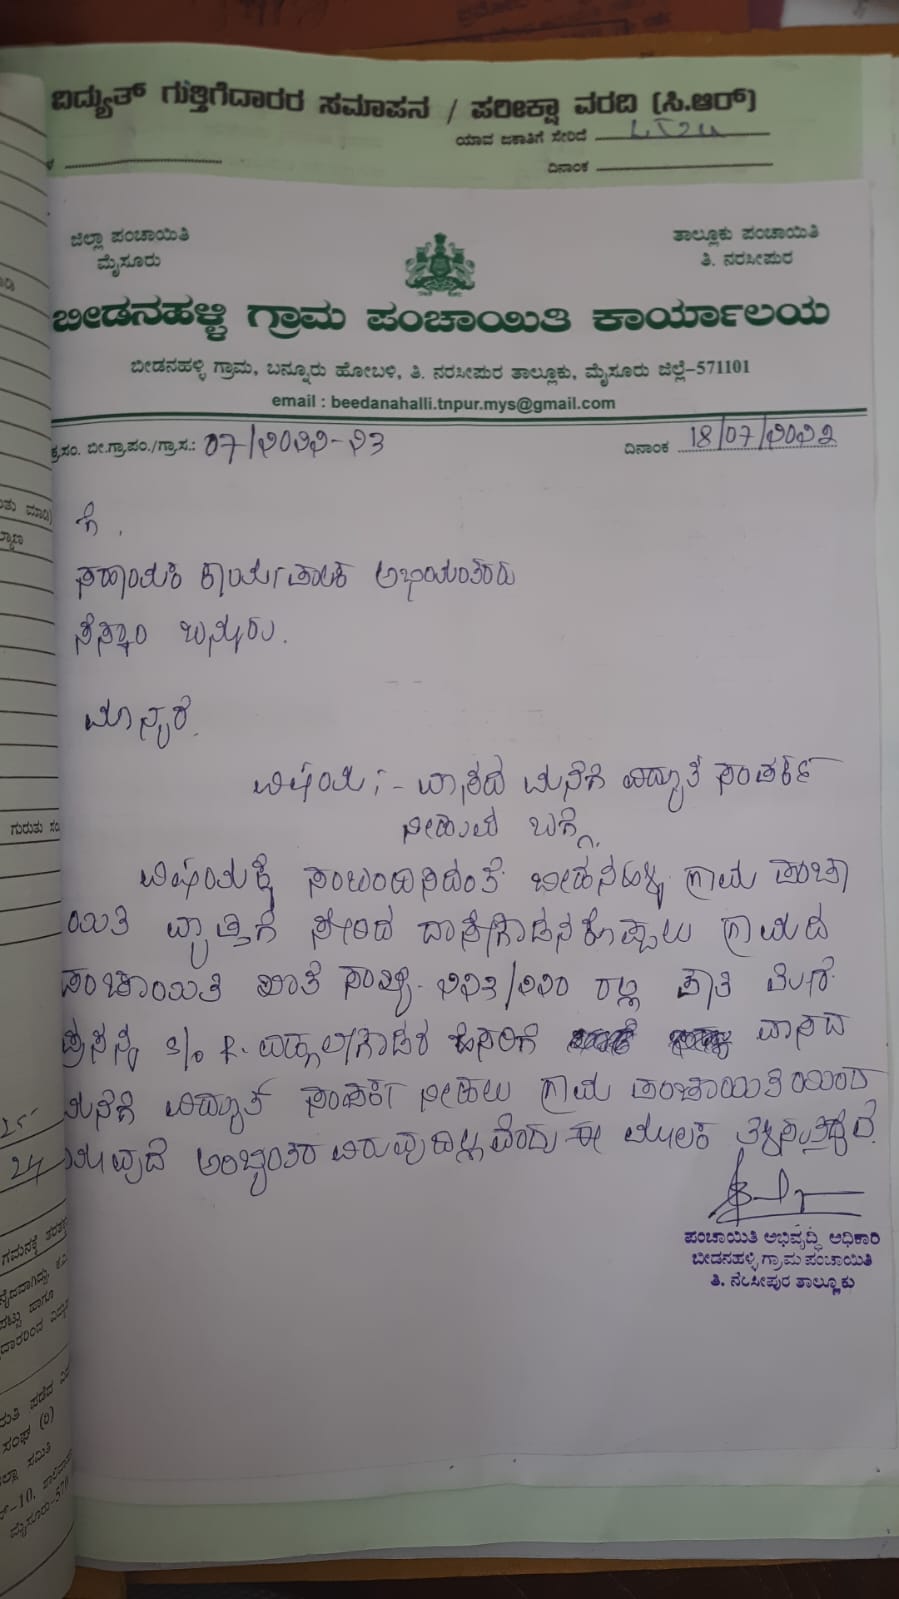 ವಿದ್ಯುತ್ ಗುತ್ತಿಗೆದಾರರ ಸಮಾಪನ / ಪರೀಕ್ಷಾ ವರದಿ (ಸಿ.ಆರ್)
ಯಾವ ಜಕಾತಿಗೆ ಸೇರಿದೆ
ದಿನಾಂಕ
ಜಿಲ್ಲಾ ಪಂಚಾಯಿತಿ
ಮೈಸೂರು
ತಾಲ್ಲೂಕು ಪಂಚಾಯಿತಿ
ತಿ. ನರಸೀಪುರ
ಬೀಡನಹಳ್ಳಿ ಗ್ರಾಮ ಪಂಚಾಯಿತಿ ಕಾರ್ಯಾಲಯ
ಬೀಡನಹಳ್ಳಿ ಗ್ರಾಮ, ಬನ್ನೂರು ಹೋಬಳಿ, ತಿ. ನರಸೀಪುರ ತಾಲ್ಲೂಕು, ಮೈಸೂರು ಜಿಲ್ಲೆ-571101
email : beedanahalli.tnpur.mys@gmail.com
ಕ್ರ.ಸಂ. ಬೀ.ಗ್ರಾ.ಪಂ./ಗ್ರಾ.ಸ.: 07/೨೦೨೨-೨೩ ದಿನಾಂಕ 18/07/೨೦೨೨
ಗೆ.
ಸಹಾಯಕ ಕಾರ್ಯಪಾಲಕ ಅಭಿಯಂತರರು
ಸೆಸ್ಕಾಂ ಬನ್ನೂರು.
ಮಾನ್ಯರೆ.
ವಿಷಯ :- ವಾಸದ ಮನೆಗೆ ವಿದ್ಯುತ್ ಸಂಪರ್ಕ
ನೀಡುವ ಬಗ್ಗೆ.
ವಿಷಯಕ್ಕೆ ಸಂಬಂಧಿಸಿದಂತೆ ಬೀಡನಹಳ್ಳಿ ಗ್ರಾಮ ಪಂಚಾ
ಯಿತಿ ವ್ಯಾಪ್ತಿಗೆ ಸೇರಿದ ದಾಸೇಗೌಡನಕೊಪ್ಪಲು ಗ್ರಾಮದ
ಪಂಚಾಯಿತಿ ಖಾತೆ ಸಂಖ್ಯೆ ೨೨೩/೨೨೦ ರಲ್ಲಿ
ಪ್ರಸನ್ನ s/o ಹೆಸರಿಗೆ ವಾಸದ
ಮನೆಗೆ ವಿದ್ಯುತ್ ಸಂಪರ್ಕ ನೀಡಲು ಗ್ರಾಮ ಪಂಚಾಯಿತಿಯಿಂದ
ಯಾವುದೆ ಅಭ್ಯಂತರ ವಿರುವುದಿಲ್ಲವೆಂದು ಈ ಮೂಲಕ ತಿಳಿಸುತ್ತಿದ್ದೆವೆ.
ಪಂಚಾಯಿತಿ ಅಭಿವೃದ್ಧಿ ಅಧಿಕಾರಿ
ಬೀಡನಹಳ್ಳಿ ಗ್ರಾಮ ಪಂಚಾಯಿತಿ
ತಿ. ನರಸೀಪುರ ತಾಲ್ಲೂಕು